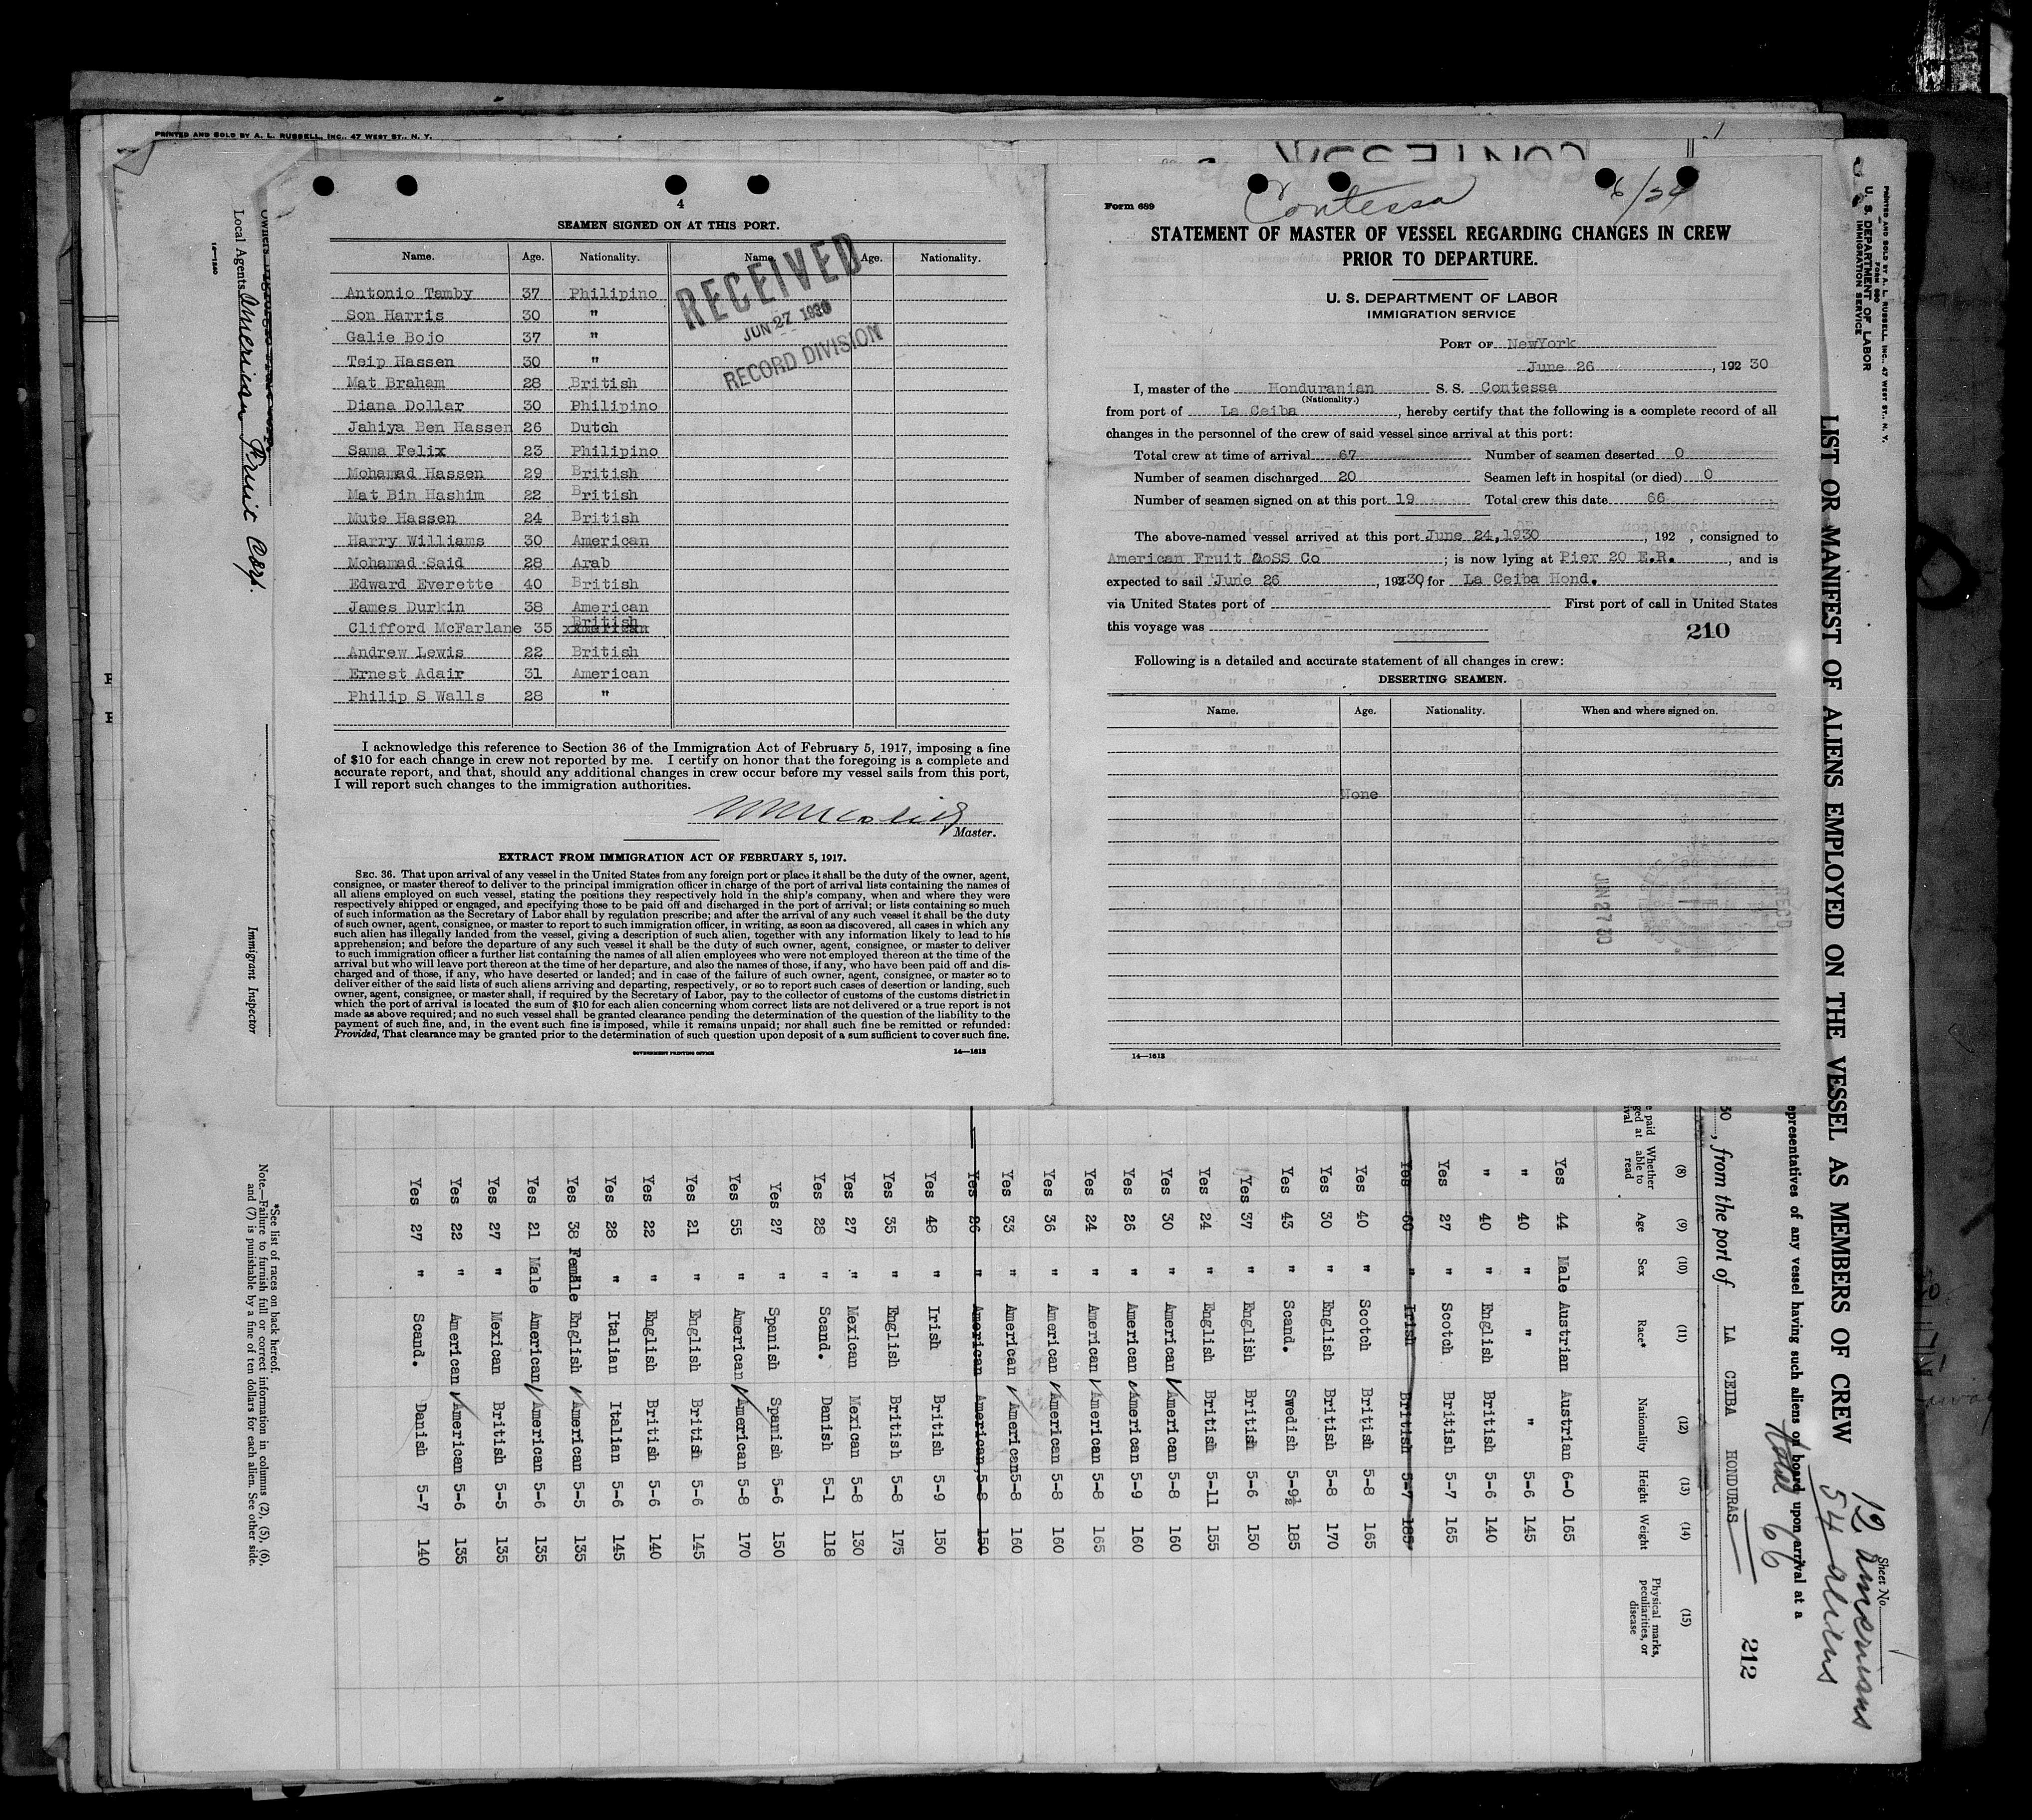 PRINTED AND SOLD BY A. L. RUSSELL, INC., 47 WEST ST., N. Y.
4
SEAMEN SIGNED ON AT THIS PORT.
Name. Age. Nationality. Name. Age. Nationality.
Antonio Tamby 37 Philipino
Son Harris 30 "
Galie Bojo 37 "
Teip Hassen 30 "
Mat Braham 28 British
Diana Dollar 30 Philipino
Jahiya Ben Hassen 26 Dutch
Sama Felix 23 Philipino
Mohamad Hassen 29 British
Mat Bin Hashim 22 British
Mute Hassen 24 British
Harry Williams 30 American
Mohamad Said 28 Arab
Edward Everette 40 British
James Durkin 38 American
Clifford McFarlane 35 British
Andrew Lewis 22 British
Ernest Adair 31 American
Philip S Walls 28 "
RECEIVED
JUN 27 1930
RECORD DIVISION
I acknowledge this reference to Section 36 of the Immigration Act of February 5, 1917, imposing a fine
of $10 for each change in crew not reported by me. I certify on honor that the foregoing is a complete and
accurate report, and that, should any additional changes in crew occur before my vessel sails from this port,
I will report such changes to the immigration authorities.
Master.
EXTRACT FROM IMMIGRATION ACT OF FEBRUARY 5, 1917.
SEC. 36. That upon arrival of any vessel in the United States from any foreign port or place it shall be the duty of the owner, agent,
consignee, or master thereof to deliver to the principal immigration officer in charge of the port of arrival lists containing the names of
all aliens employed on such vessel, stating the positions they respectively hold in the ship's company, when and where they were
respectively shipped or engaged, and specifying those to be paid off and discharged in the port of arrival; or lists containing so much
of such information as the Secretary of Labor shall by regulation prescribe; and after the arrival of any such vessel it shall be the duty
of such owner, agent, consignee, or master to report to such immigration officer, in writing, as soon as discovered, all cases in which any
such alien has illegally landed from the vessel, giving a description of such alien, together with any information likely to lead to his
apprehension; and before the departure of any such vessel it shall be the duty of such owner, agent, consignee, or master to deliver
to such immigration officer a further list containing the names of all alien employees who were not employed thereon at the time of the
arrival but who will leave port thereon at the time of her departure, and also the names of those, if any, who have been paid off and dis-
charged and of those, if any, who have deserted or landed; and in case of the failure of such owner, agent, consignee, or master so to
deliver either of the said lists of such aliens arriving and departing, respectively, or so to report such cases of desertion or landing, such
owner, agent, consignee, or master shall, if required by the Secretary of Labor, pay to the collector of customs of the customs district in
which the port of arrival is located the sum of $10 for each alien concerning whom correct lists are not delivered or a true report is not
made as above required; and no such vessel shall be granted clearance pending the determination of the question of the liability to the
payment of such fine, and, in the event such fine is imposed, while it remains unpaid; nor shall such fine be remitted or refunded:
Provided, That clearance may be granted prior to the determination of such question upon deposit of a sum sufficient to cover such fine.
GOVERNMENT PRINTING OFFICE 14—1613
CONTESSA
Contessa 6/24
Form 689
STATEMENT OF MASTER OF VESSEL REGARDING CHANGES IN CREW
PRIOR TO DEPARTURE.
U. S. DEPARTMENT OF LABOR
IMMIGRATION SERVICE
PORT OF NewYork
June 26, 192 30
I, master of the Honduranian S. S. Contessa
(Nationality.)
from port of La Ceiba, hereby certify that the following is a complete record of all
changes in the personnel of the crew of said vessel since arrival at this port:
Total crew at time of arrival 67 Number of seamen deserted 0
Number of seamen discharged 20 Seamen left in hospital (or died) 0
Number of seamen signed on at this port 19 Total crew this date 66
The above-named vessel arrived at this port June 24,1930, 192 , consigned to
American Fruit &oSS Co ; is now lying at Pier 20 E.R. , and is
expected to sail June 26 , 19230, for La Ceiba Hond.
via United States port of First port of call in United States
this voyage was
210
Following is a detailed and accurate statement of all changes in crew:
DESERTING SEAMEN.
Name. Age. Nationality. When and where signed on.
None
JUN 27 30
REC'D
14—1613
Local Agents American Fruit Corp.
14—1240
Immigrant Inspector
*See list of races on back hereof.
Note.—Failure to furnish full or correct information in columns (2), (5), (6),
and (7) is punishable by a fine of ten dollars for each alien. See other side.
PRINTED AND SOLD BY A. L. RUSSELL, INC., 47 WEST ST., N. Y.
FORM 680
U. S. DEPARTMENT OF LABOR
IMMIGRATION SERVICE
LIST OR MANIFEST OF ALIENS EMPLOYED ON THE VESSEL AS MEMBERS OF CREW
Sheet No.
12 Americans
54 aliens
Total 66
representatives of any vessel having such aliens on board upon arrival at a
30, from the port of LA CEIBA HONDURAS
212
(8) (9) (10) (11) (12) (13) (14) (15)
Whether able to read Age Sex Race* Nationality Height Weight Physical marks, peculiarities, or disease
Yes 44 Male Austrian Austrian 6-0 165
" 40 " " " 5-6 145
" 40 " English British 5-6 140
Yes 27 " Scotch British 5-7 165
Yes 60 " Irish British 5-7 185
Yes 40 " Scotch British 5-8 165
Yes 30 " English British 5-8 170
Yes 43 " Scand. Swedish 5-9½ 185
Yes 37 " English British 5-6 150
Yes 24 " English British 5-11 155
Yes 30 " American American 5-8 160
Yes 26 " American American 5-9 160
Yes 24 " American American 5-8 165
Yes 36 " American American 5-8 160
Yes 33 " American American 5-8 160
Yes 26 " American American 5-8 150
Yes 48 " Irish British 5-9 150
Yes 35 " English British 5-8 175
Yes 27 " Mexican Mexican 5-8 130
Yes 28 " Scand. Danish 5-1 118
Yes 27 " Spanish Spanish 5-6 150
Yes 55 " American American 5-8 170
Yes 21 " English British 5-6 145
Yes 22 " English British 5-6 140
Yes 28 " Italian Italian 5-6 145
Yes 38 Female English American 5-5 135
Yes 21 Male American American 5-6 135
Yes 27 " Mexican British 5-5 135
Yes 22 " American American 5-6 135
Yes 27 " Scand. Danish 5-7 140